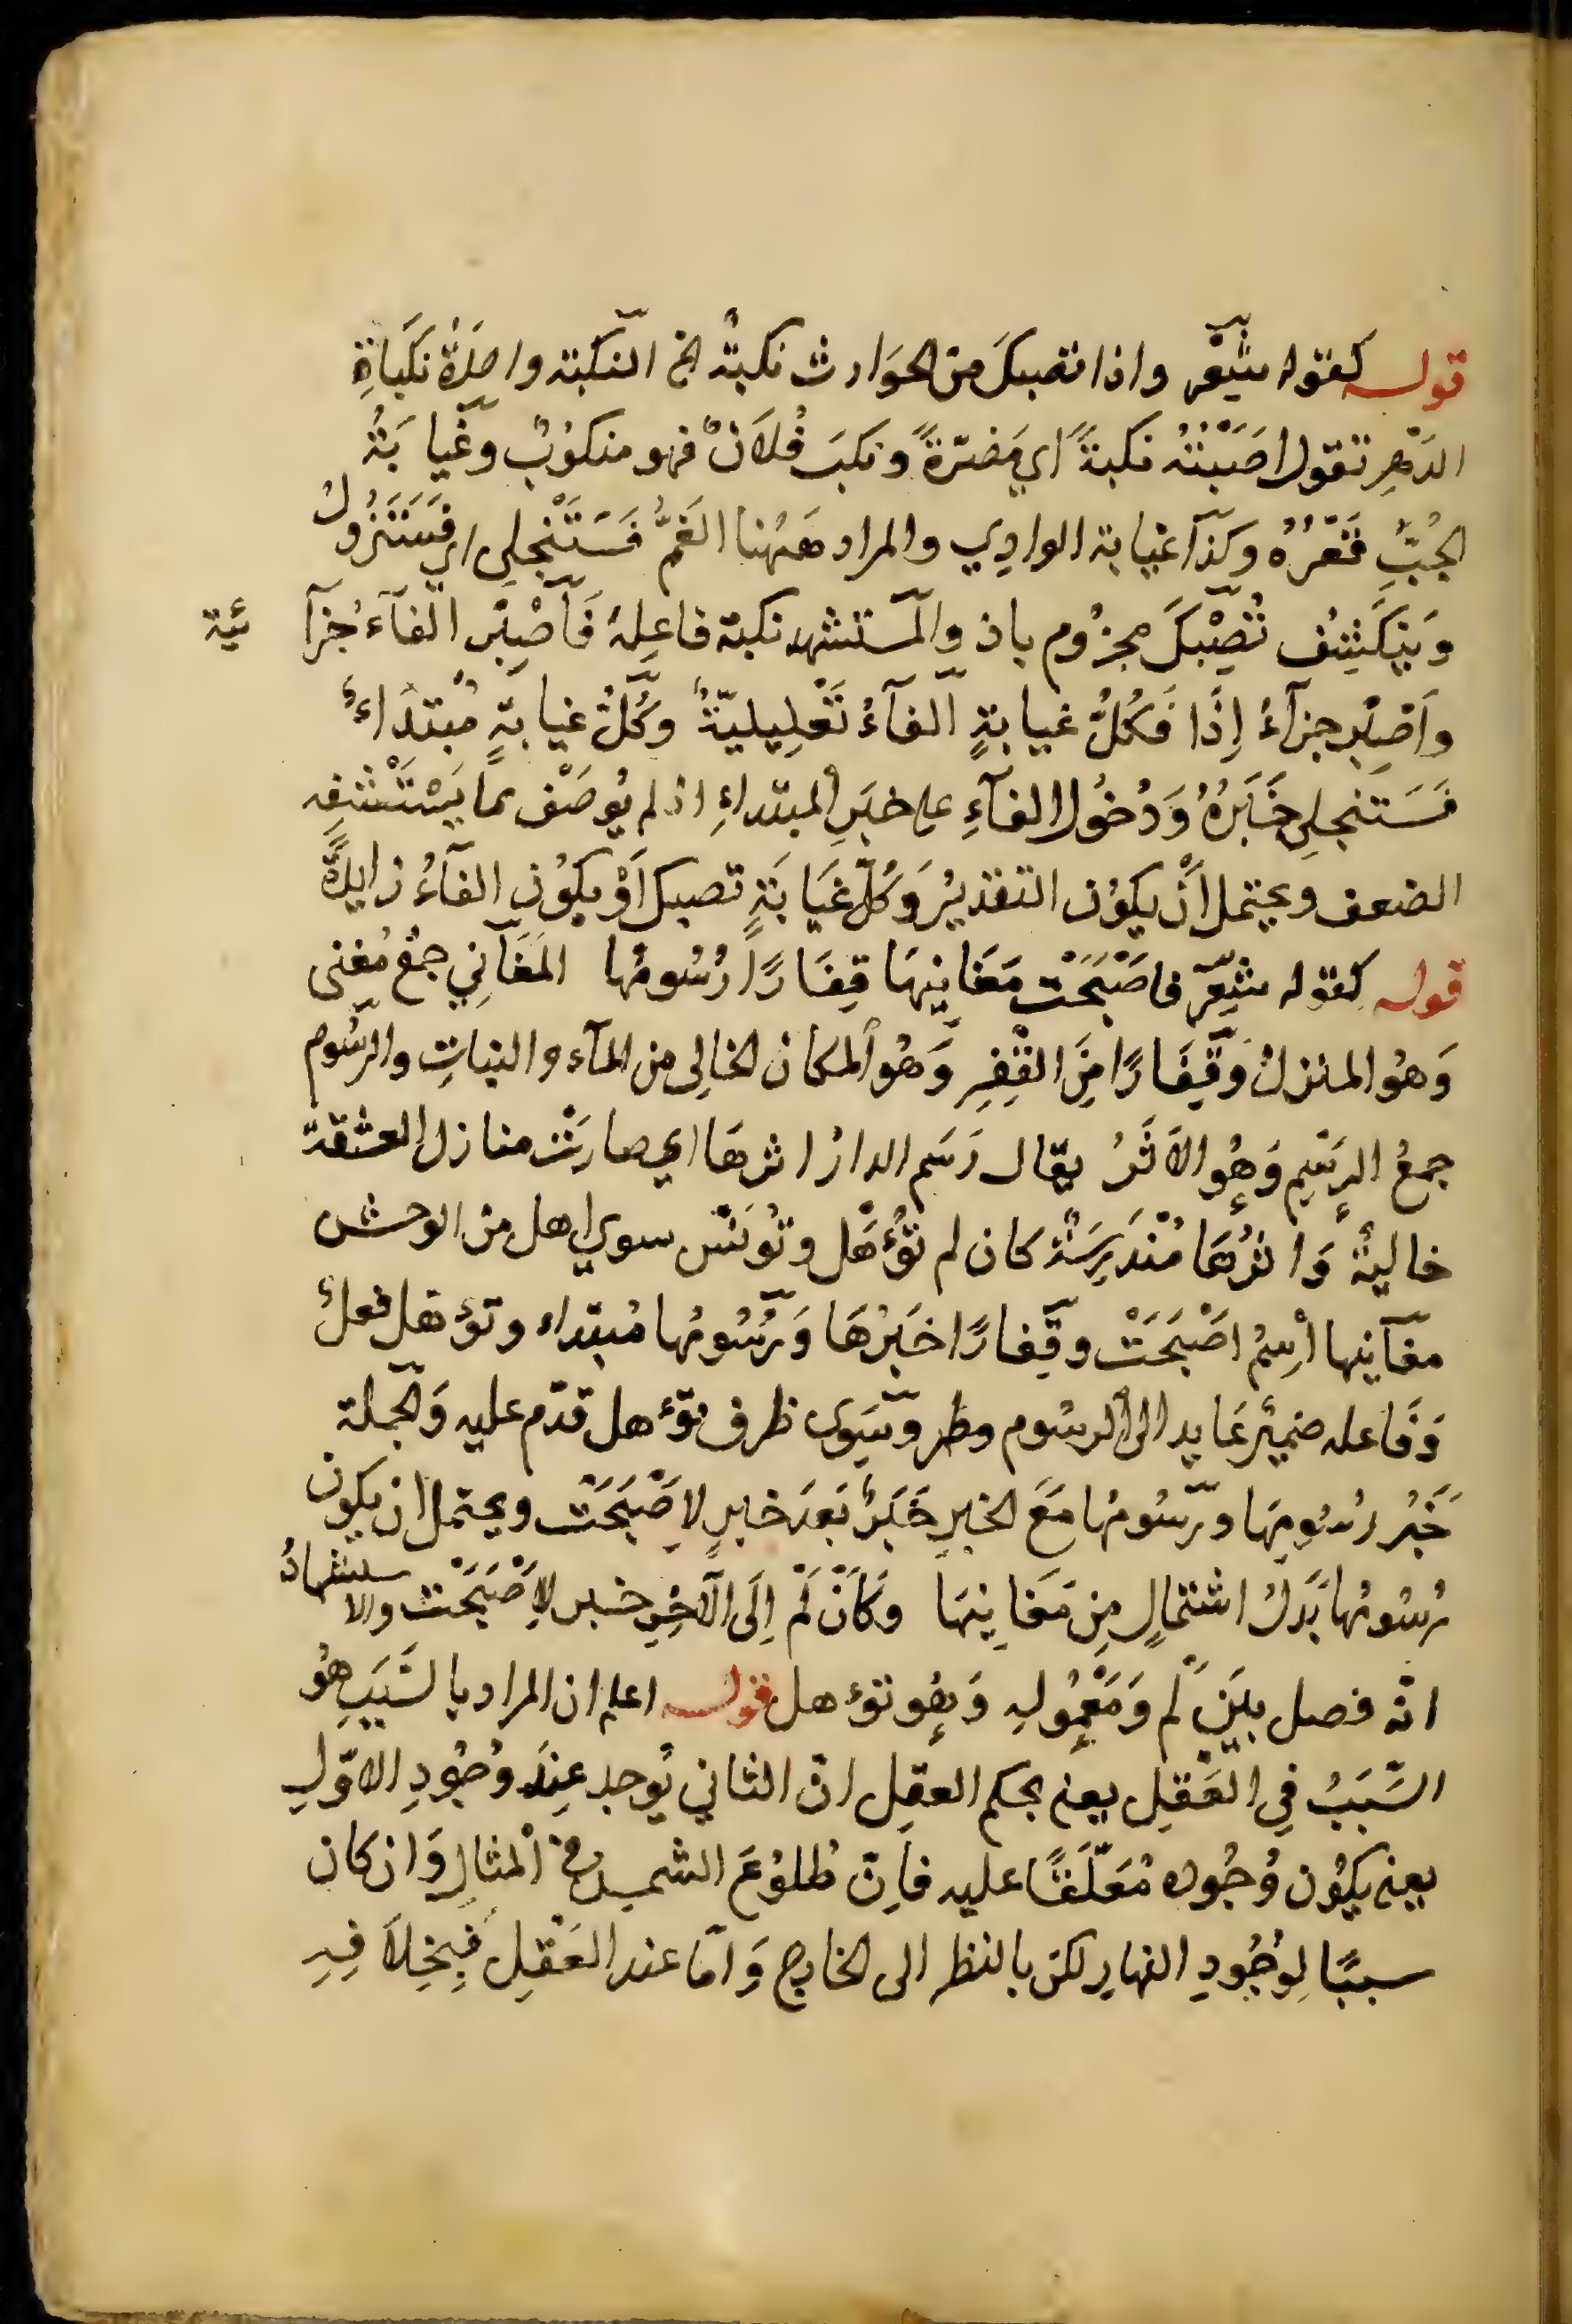 قوله كقوله شِعْر واذا تصبكَ من الحوَادث نكبةٌ الخ النكبته واحدَةُ نكَبَاةِ
الدّهرِ تقول اصَبَتْنُه نكبةً اي مَضرّةً ونكبَ فُلَانٌ فهو منكوُبٌ وغَيابَتُه
الجُبِّ قَعْرُهُ وكَذَا غيابة الوادِي والمراد هَهُنا الغَمُّ فَسَتَنْجلِى اي فَسَتَزُولُ
وَيَنكَشِفُ تُصِبْكَ مجزُوم باذ والمستشهد نكبة فاعِلهُ فَاصْبِر الفآءُ جُزآئية
واَصِبْر جزآءُ اِذَا فَكُلُّ غيابةٍ الفآءُ تَعْلِيليّةٌ وكُلُّ غيابةٍ مُبتدَاءٌ
فَسَتَنجلِى خَبَرُهُ وَدُخُول الفآءِ على خبَرِ المبتداءِ اذ لم يُوصَف بما يَسْتَشفِه
الضعف ويحتمل اَنْ يكوُن التقدِيْرُ وَكُلّ غَيَابَةٍ تصبك اَوْ يكوُن الفآءُ زايدَةً
قوله كقوله شِعْر فاصْبَحَت مَغَانِيهَا قِفَارًا رُسُومُها المَغَانِي جمْعُ مُغنى
وَهُو المنزلُ وَقِفَارًا مِنَ القْفِرِ وَهُو المكان الخالِى من المآء والنباتِ والرّسُوم
جمعُ الرِسَمِ وَهُو الاَثَرُ يقال رَسَم الدارُ اثرهَا اي صارَتْ منازل العشقة
خاليةً وَاثرُهَا مُنْدَرِسَةً كان لم تُؤْهَل وتُونَس سوي اهل من الوحش
مغآنيها اْسِمُ اصْبَحَتْ وقِفارًا خَبَرُهَا وَرُسُومُها مُبتداء وتؤهل فعلٌ
وَفَاعله ضميْر عَايد الى الرسُوم وسِوَى ظرف تؤهل قدّم عليه وَالجملة
خَبَرُ رسُومِهَا ورسُومُها مَعَ الخبرِ خَبَرٌ بَعدَ خبرٍ لاِصْبَحَتْ ويحتمل ان يكون
رُسُومُها بَدَلُ اشتمالٍ مِن مَغَانِيهَا وكَاَنْ لَمْ اِلَى الآخِرِ خبر لاِصْبَحَتْ والاستشهادُ
انّه فصل بيَنَ لم وَمَعْمُولِه وَهُو تؤهل قوله اعلم ان المراد بالسَّبَبِ هُو
السَّبَبُ فِي العَقْلِ يعنى بحكم العقِل انّ الثاني يُوجد عِندَ وُجُودِ الاوّلِ
يعنى يكُون وُجُوده مُعَلّقًا عليه فاِنّ طُلوُعَ الشمس في المثالِ وَان كان
سببًا لِوُجُودِ النهارِ لكن بالنظر الى الخارج وَامّا عند العَقِلِ فَبِخِلَافِهِ